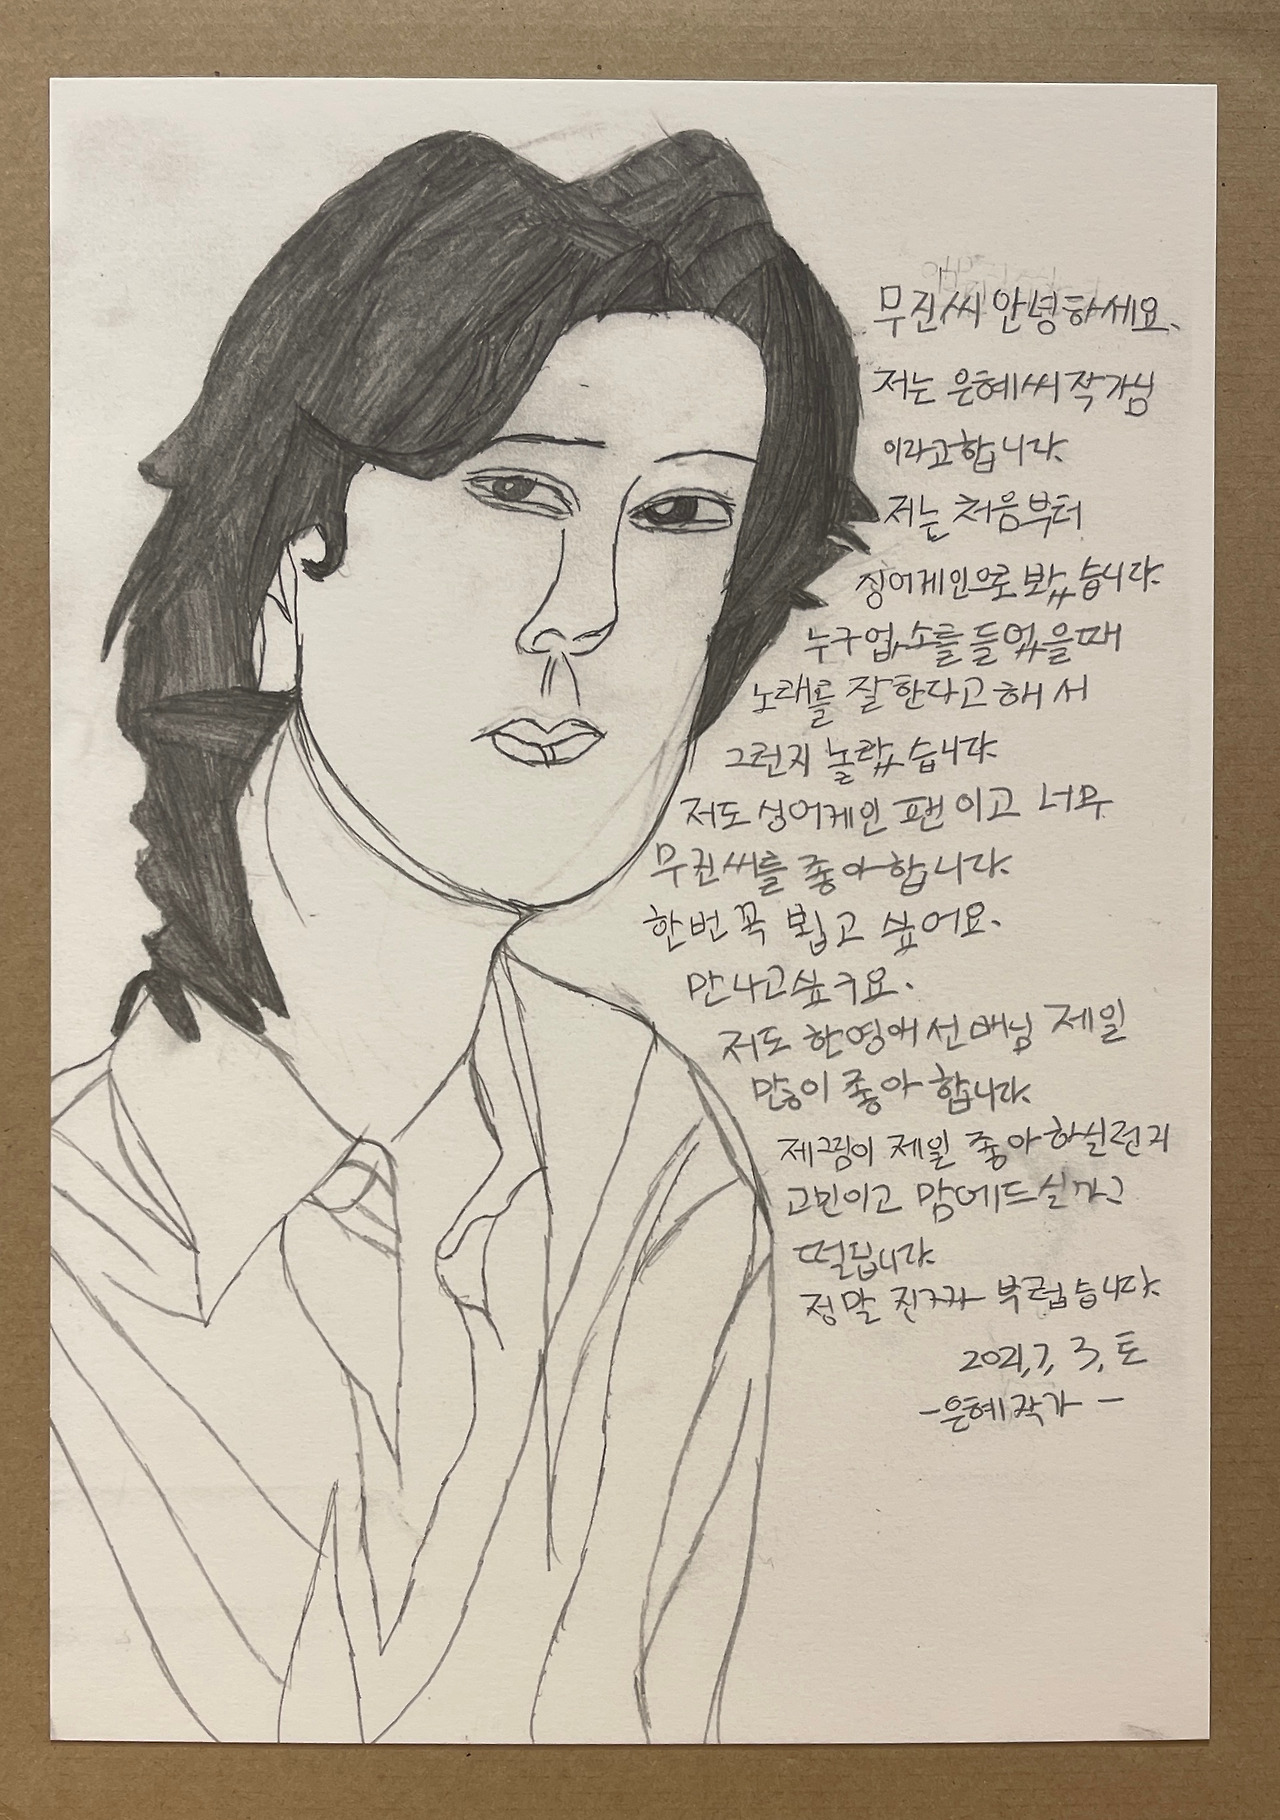 무진씨 안녕하세요.
저는 은혜씨 작가님
이라고합니다.
저는 처음부터
싱어게인으로 봤습니다.
누구없소를 들었을때
노래를 잘한다고해서
그런지 놀랐습니다.
저도 싱어게인 팬이고 너무
무진씨를 좋아합니다.
한번 꼭 뵙고 싶어요.
만나고싶
저도 한영애선배님 제일
많이 좋아합니다.
제그림이 제일 좋아하실런지
고민이고 맘에드실까?
떨립니다.
정말 진 부럽습니다.
2021, 7, 3, 토
-은혜작가-